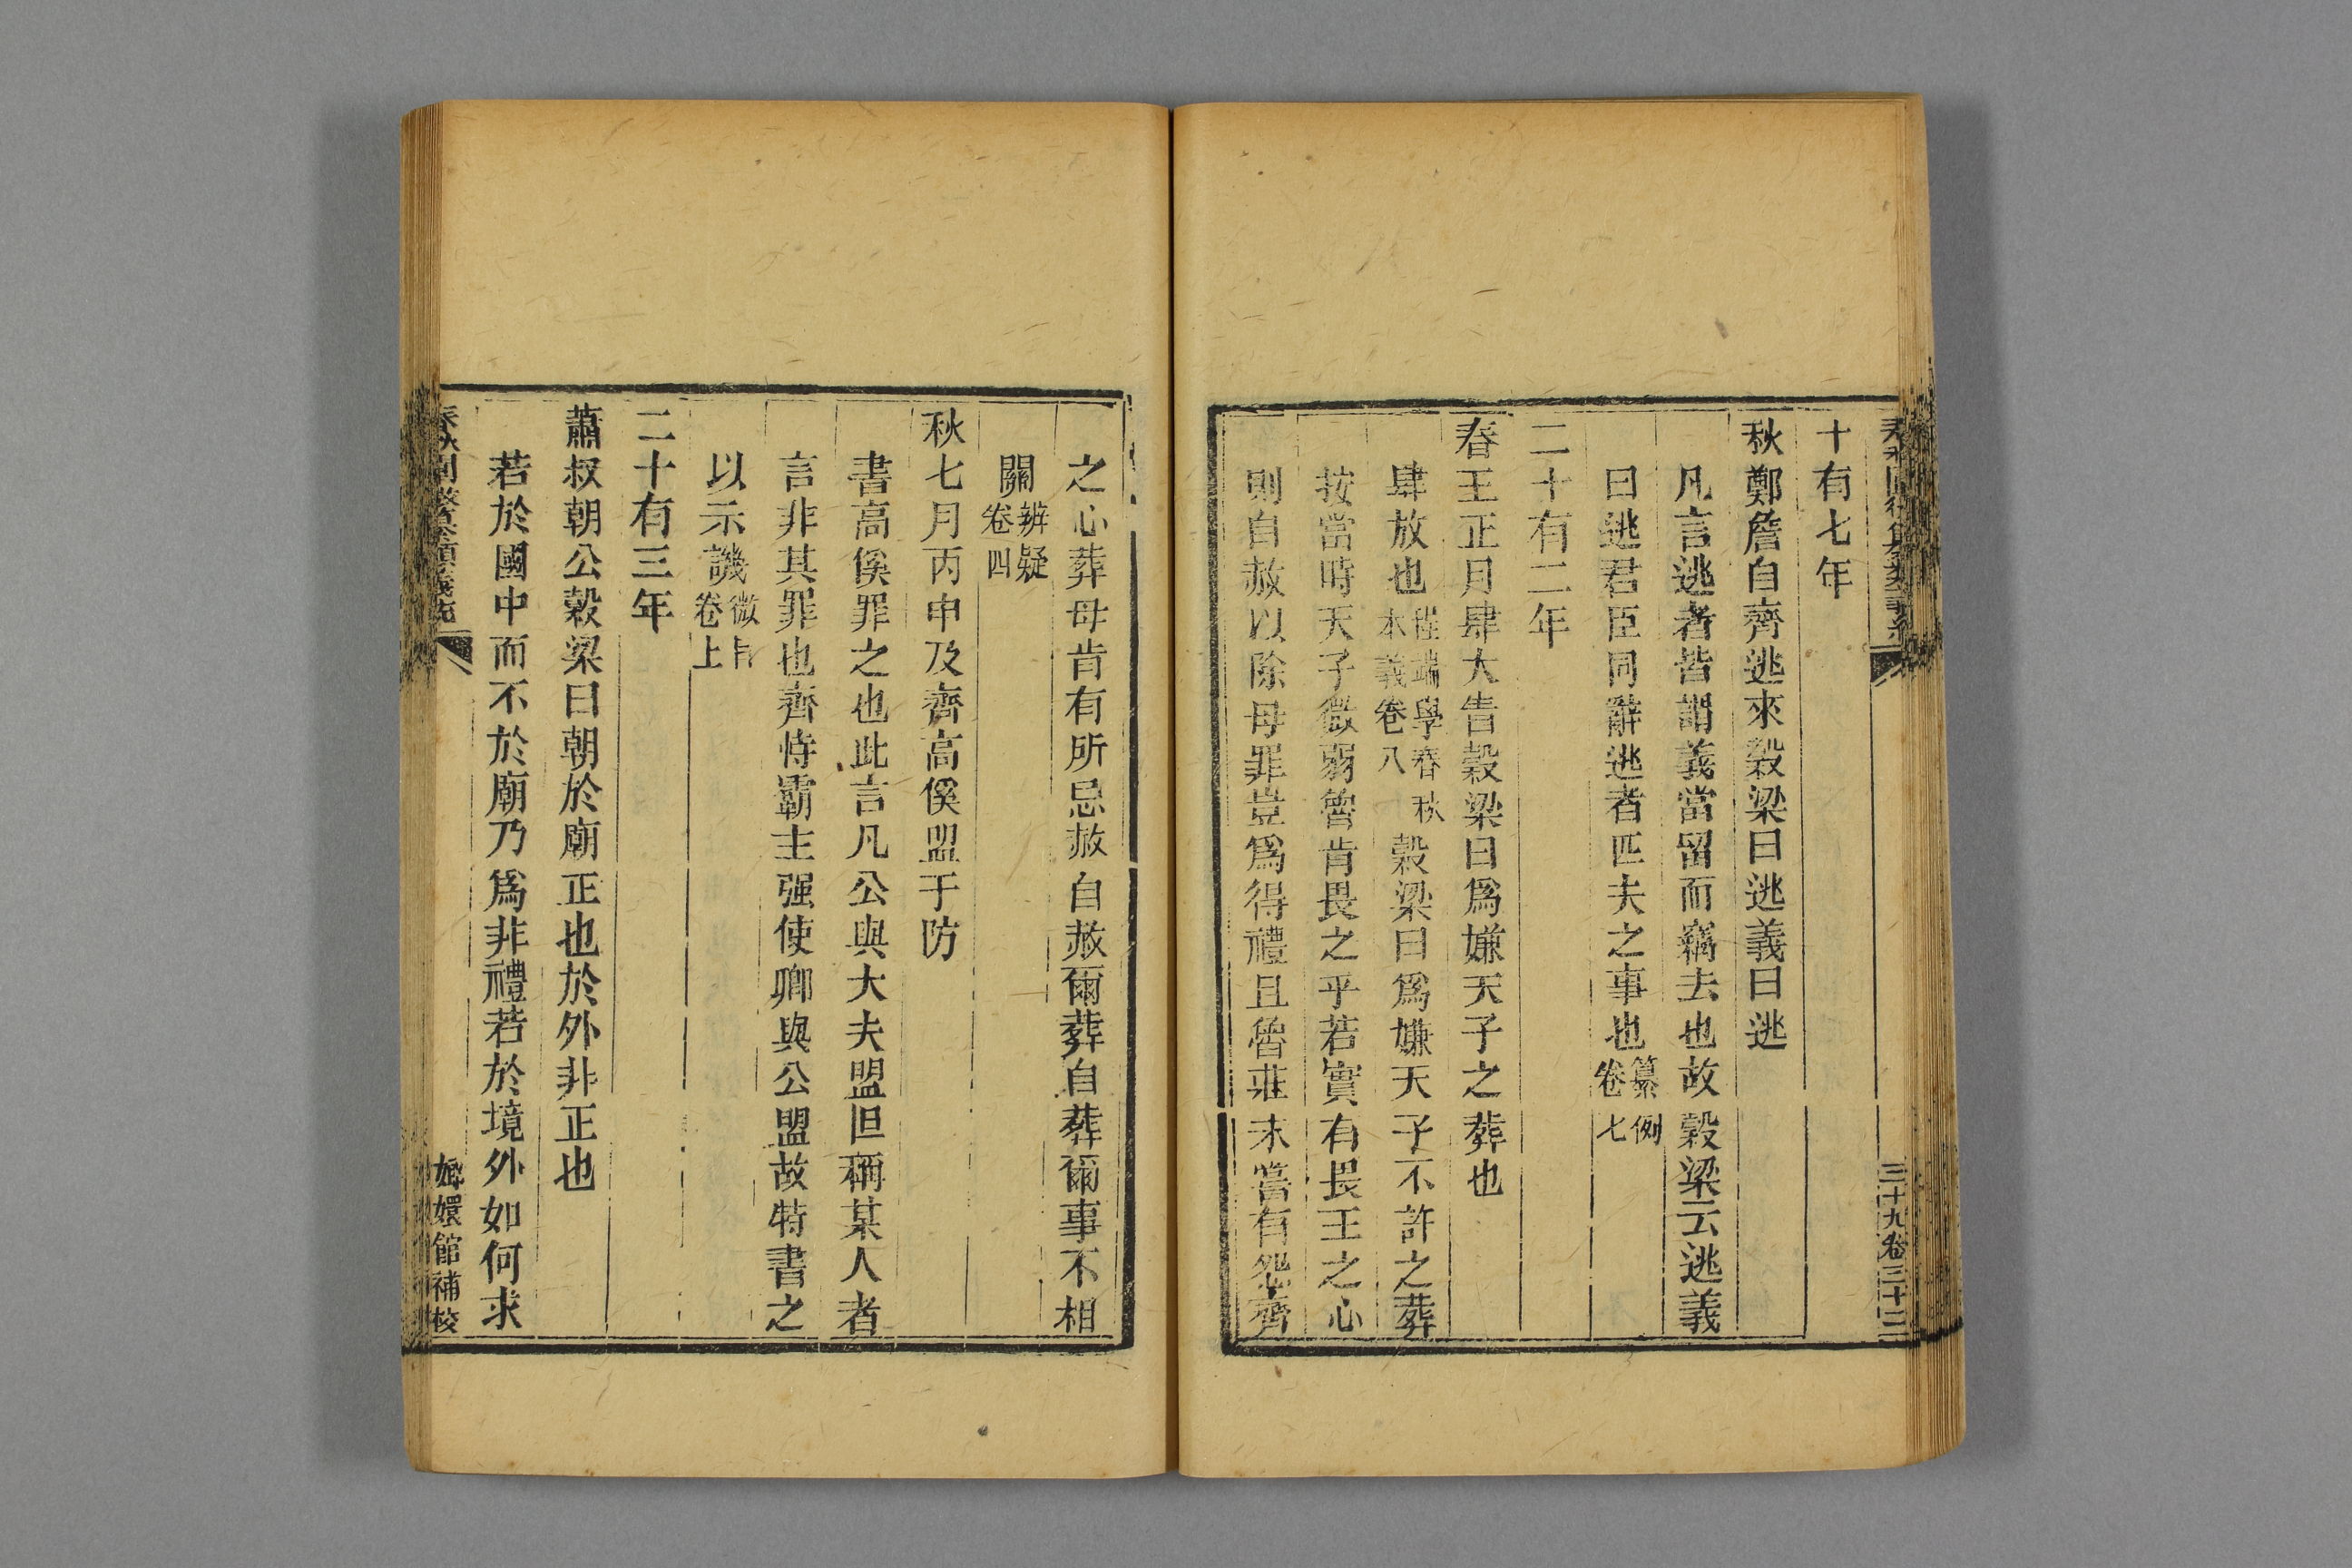 十有七年
秋鄭詹自齊逃來穀梁曰逃義曰逃
凡言逃者皆謂義當留而竊去也故穀梁云逃義
曰逃君臣同辭逃者匹夫之事也纂例卷七
二十有二年
春王正月肆大眚穀梁曰爲嫌天子之葬也
肆放也程端學春秋本義卷八穀梁曰爲嫌天子不許之葬
按當時天子微弱魯肯畏之乎若實有畏王之心
則自赦以除母罪豈爲得禮且魯莊未嘗有怨齊
三十九卷三十三
之心葬母肯有所忌赦自赦爾葬自葬爾事不相
關辨疑卷四
秋七月丙申及齊高傒盟于防
書高傒罪之也此言凡公與大夫盟但稱某人者
言非其罪也齊恃霸主强使卿與公盟故特書之
以示譏微旨卷上
二十有三年
蕭叔朝公穀梁曰朝於廟正也於外非正也
若於國中而不於廟乃爲非禮若於境外如何求
嫏嬛館補校